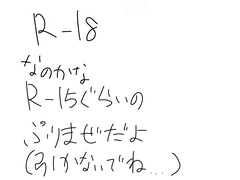 R-18
なのかな
R-15ぐらいの
ぷりまぜだよ
(引かないでね...)